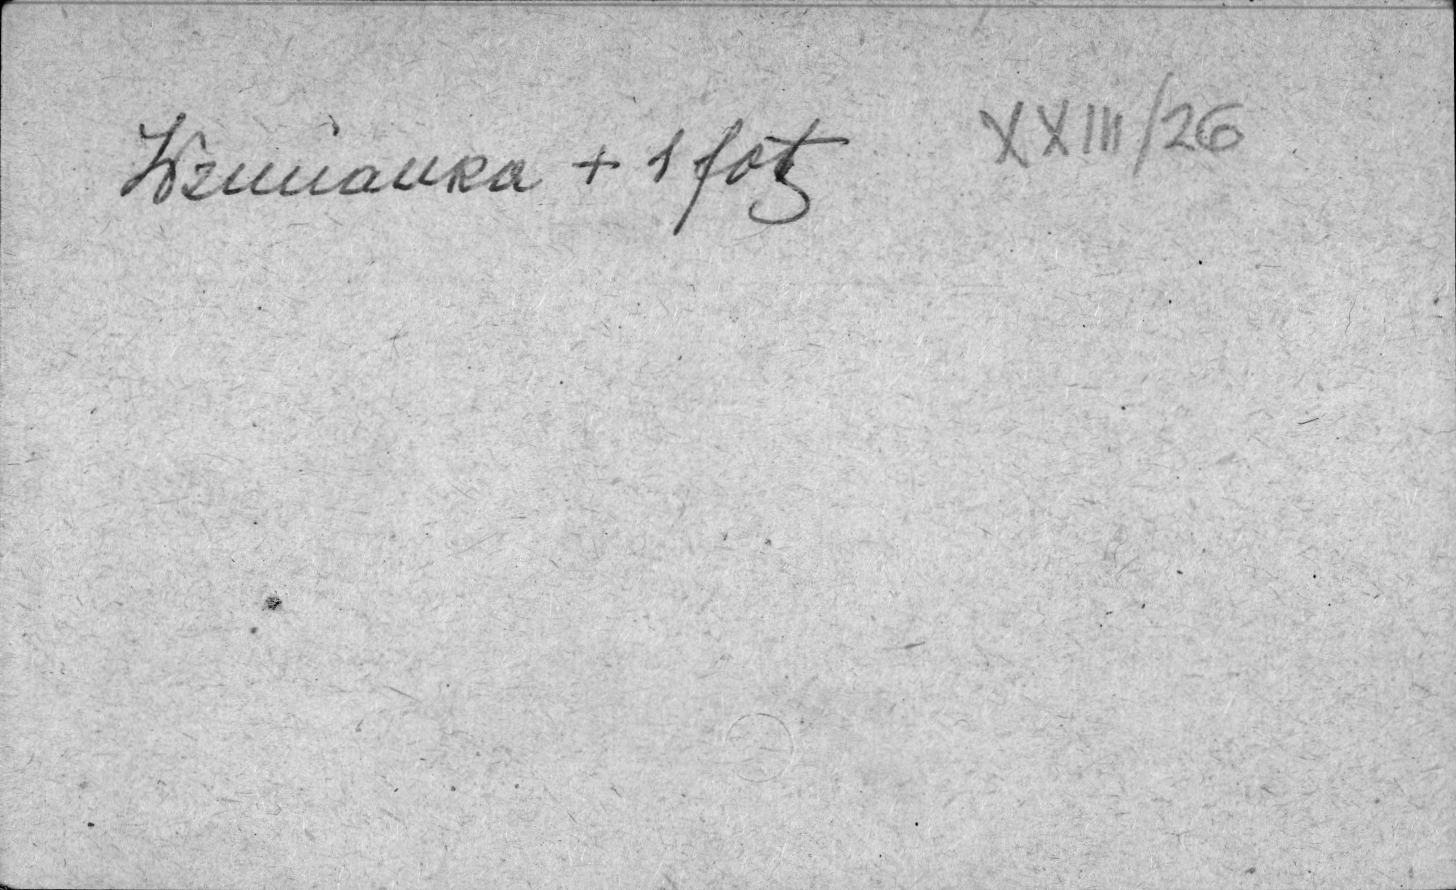 Wzmianka + 1 fot. XXIII/26